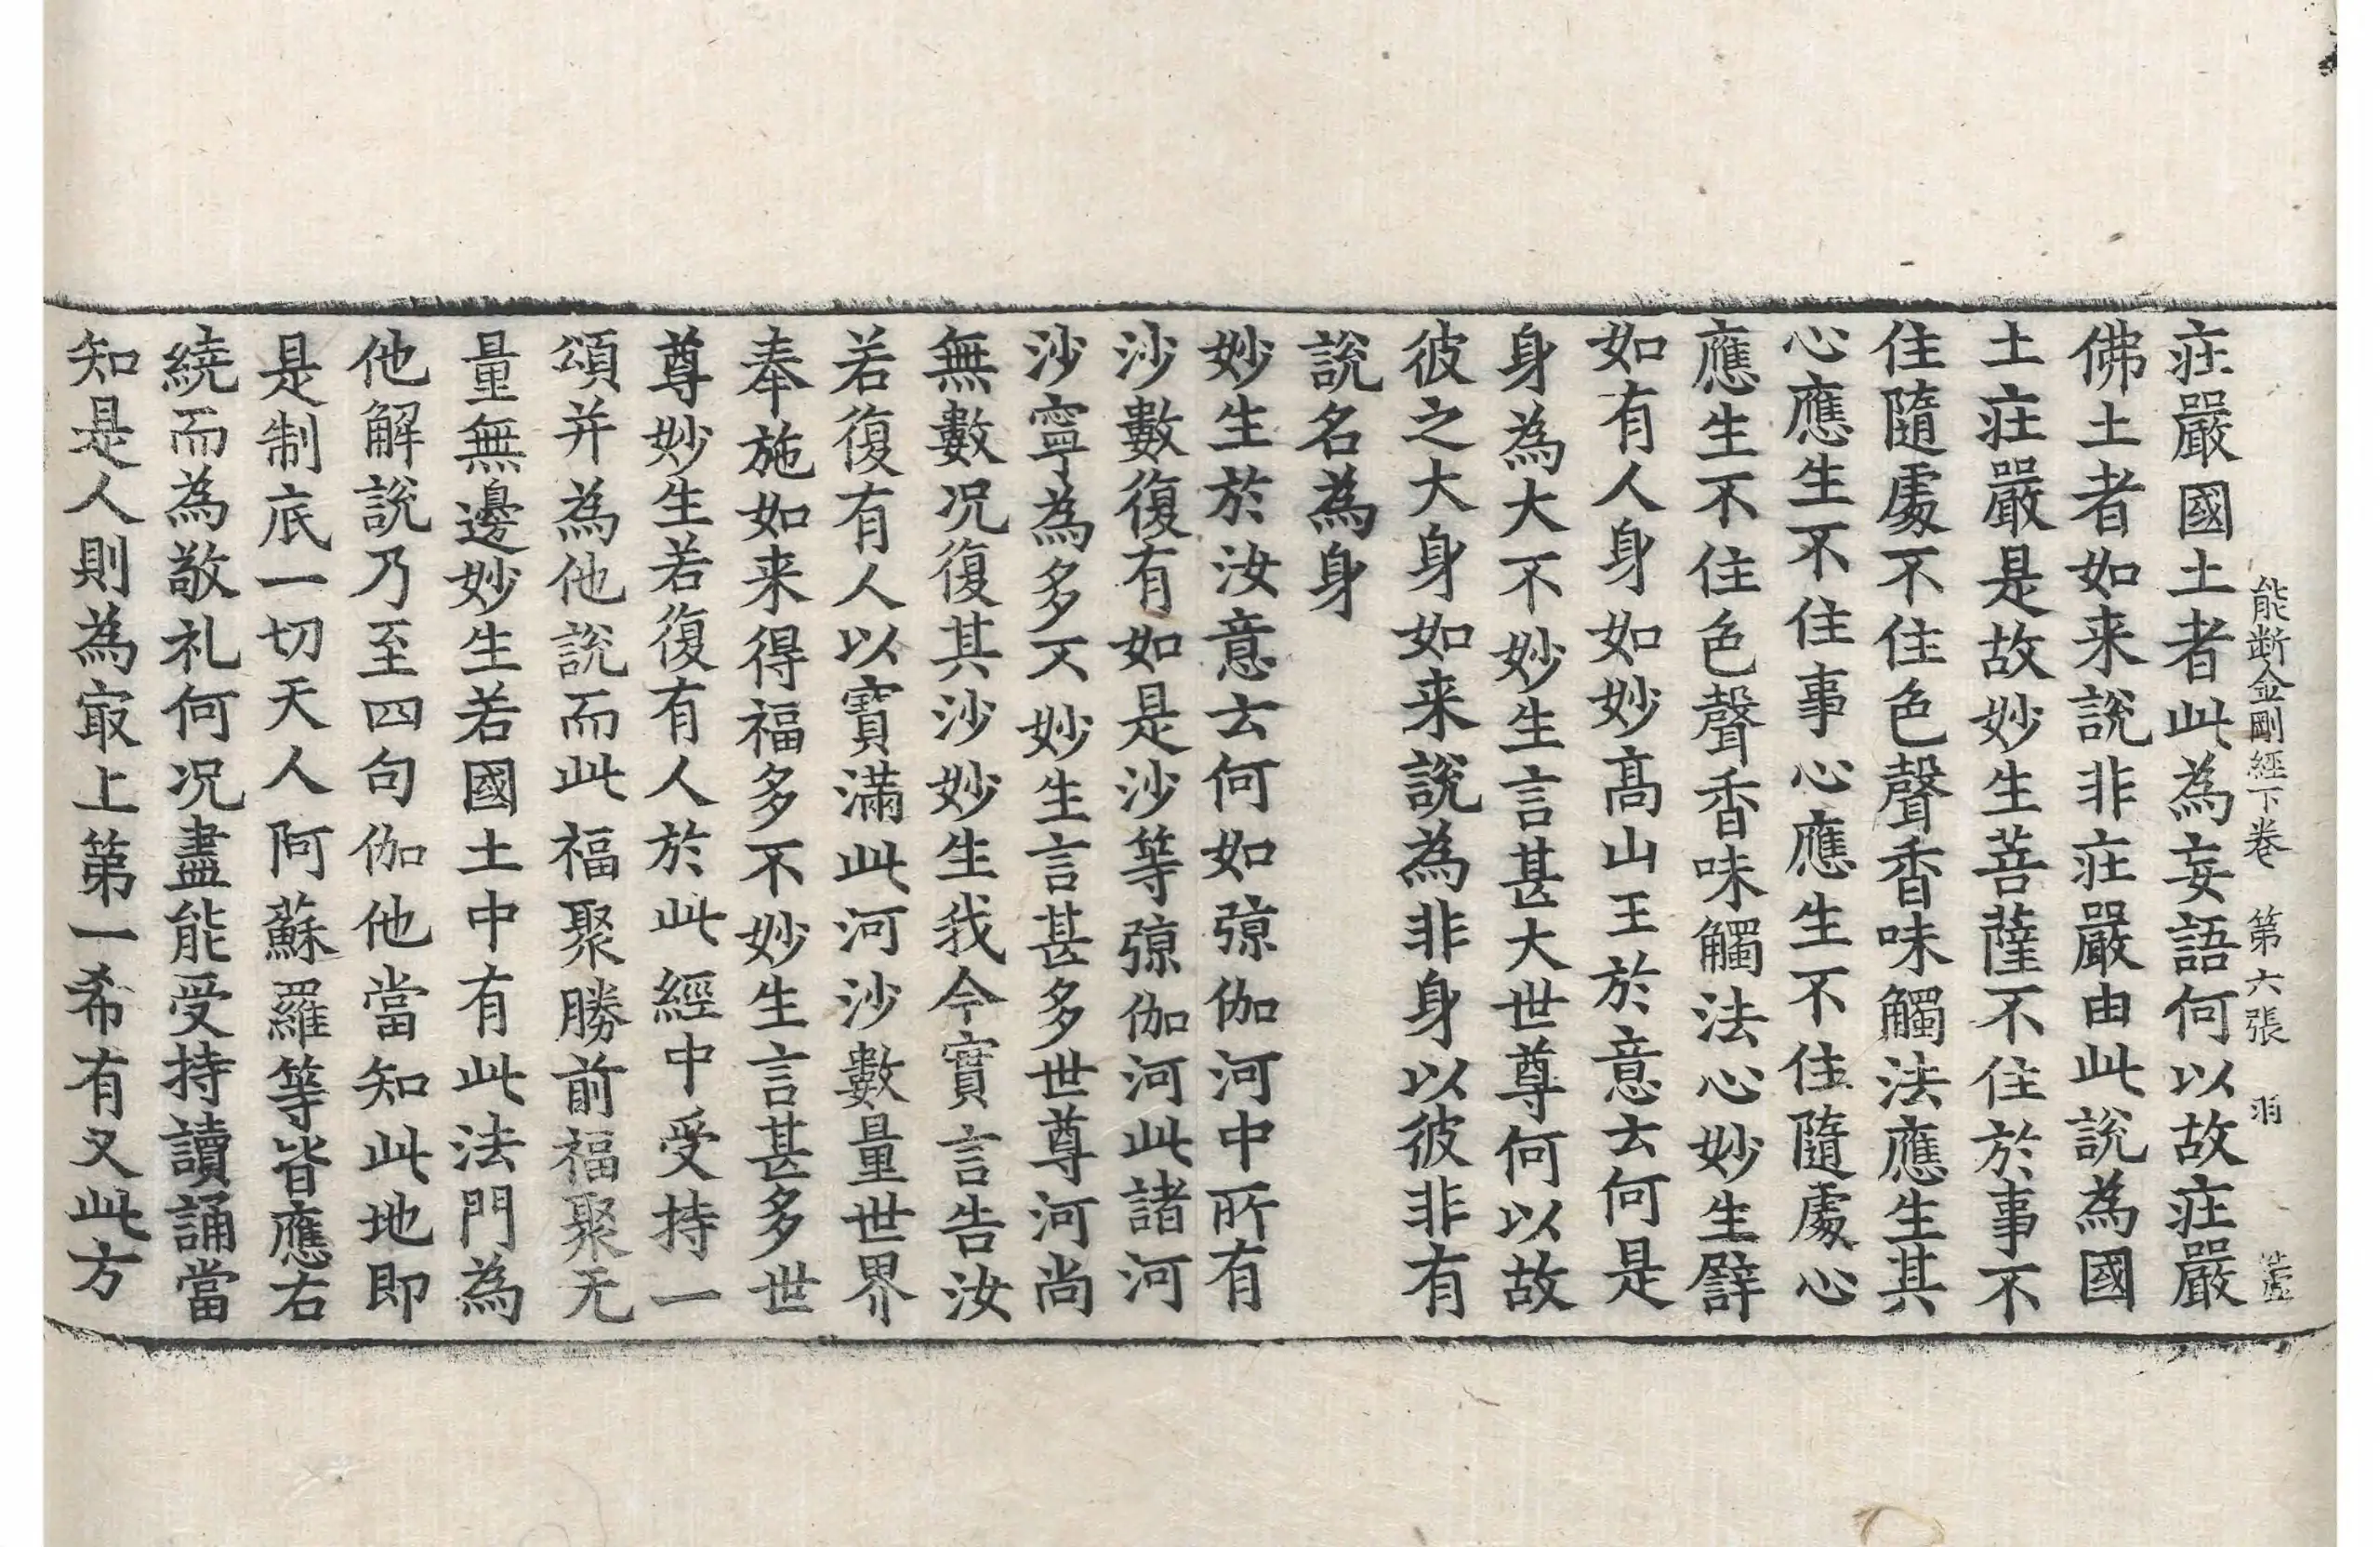 能断金剛經下卷 第六張 羽
莊嚴國土者此為妄語何以故莊嚴
佛土者如来說非莊嚴由此說為國
土莊嚴是故妙生菩薩不住於事不
住隨處不住色聲香味觸法應生其
心應生不住事心應生不住隨處心
應生不住色聲香味觸法心妙生譬
如有人身如妙高山王於意云何是
身為大不妙生言甚大世尊何以故
彼之大身如来說為非身以彼非有
說名為身
妙生於汝意云何如弶伽河中所有
沙數復有如是沙等弶伽河此諸河
沙寧為多不妙生言甚多世尊河尚
無數况復其沙妙生我今實言告汝
若復有人以寶滿此河沙數量世界
奉施如来得福多不妙生言甚多世
尊妙生若復有人於此經中受持一
頌并為他說而此福聚勝前福聚无
量無邊妙生若國土中有此法門為
他解說乃至四句伽他當知此地即
是制底一切天人阿蘇羅等皆應右
繞而為敬礼何况盡能受持讀誦當
知是人則為冣上第一希有又此方